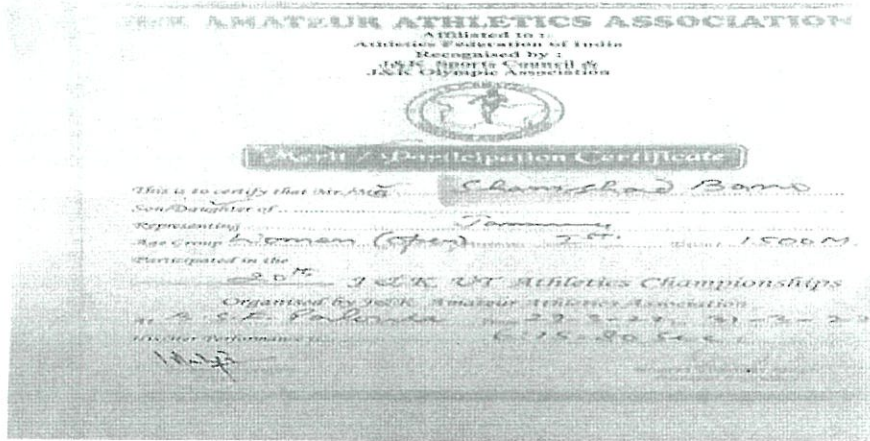 J&K AMATEUR ATHLETICS ASSOCIATION
Affiliated to :
Athletics Federation of India
Recognised by :
J&K Sports Council &
J&K Olympic Association
Merit / Participation Certificate
This is to certify that Mr./Miss Shamshad Bano
Son/Daughter of
Representing Jammu
Age Group Women (Open) Ist. 1500M
Participated in the
20th J&K UT Athletics Championships
Organised by J&K Amateur Athletics Association
at B.S.F. Paloura 31-3-22
His/Her Performance is 6:15.20 Sec.